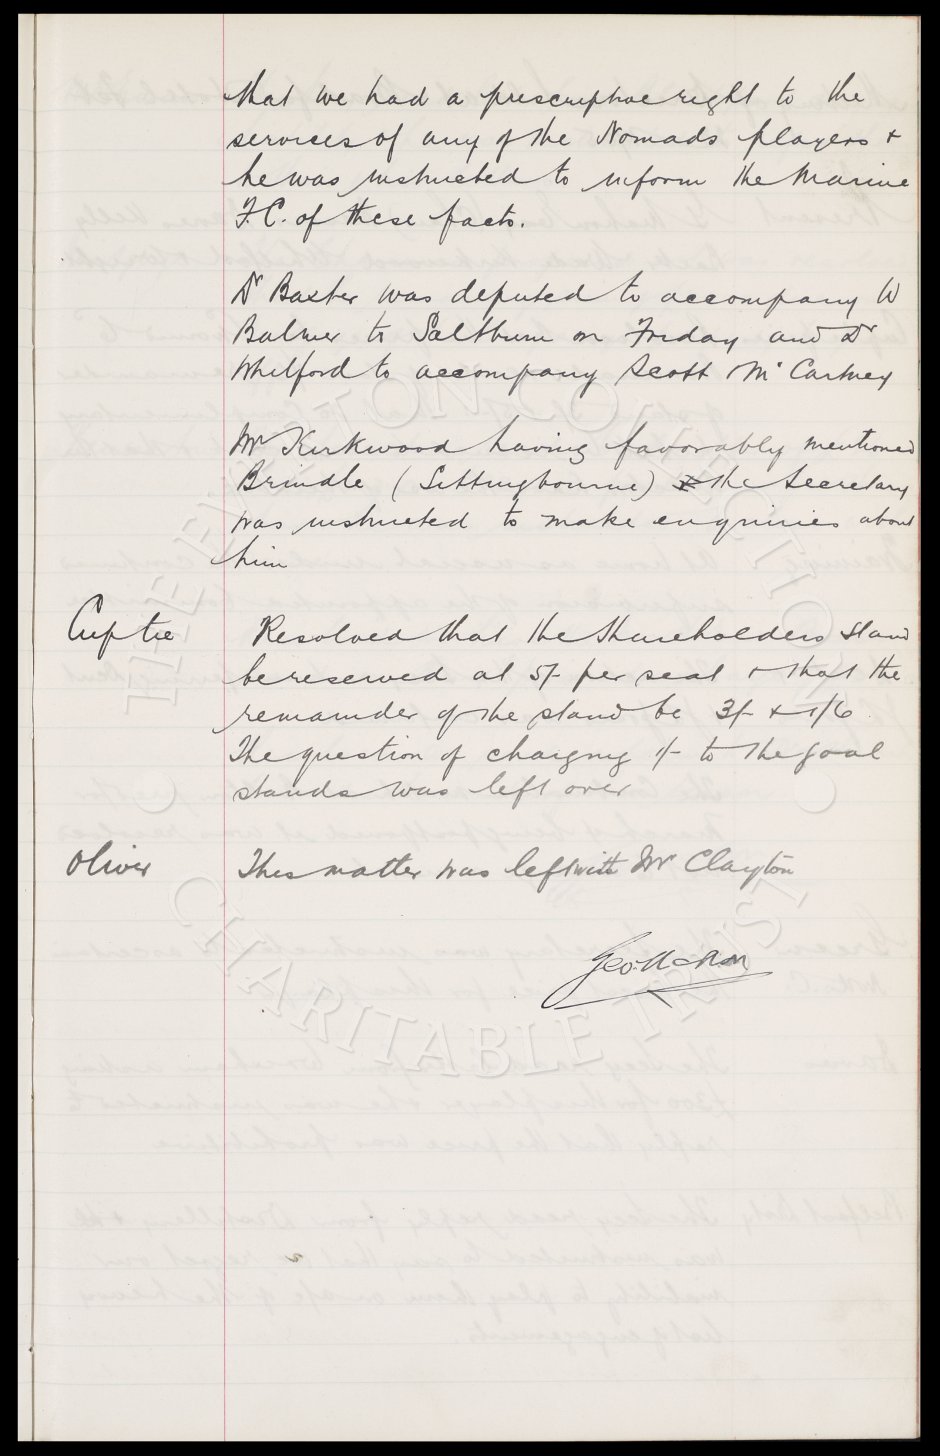 that we had a prescriptive right to the
services of any of the Nomads players +
he was instructed to inform the Marine
F.C. of these facts.
Dr Baxter was deputed to accompany W
Balmer to Saltburn on Friday and Dr
Whitford to accompany Scott McCartney
Mr Kirkwood having favorably mentioned
Brindle (Sittingbourne) the Secretary
was instructed to make enquiries about
him
Cup tie Resolved that the Shareholders stand
be reserved at 5/- per seat + that the
remainder of the stand be 3/- + 1/6
The question of charging 1/- to the goal
stands was left over
Oliver This matter was left with Mr Clayton
Geo: Mahon
THE EVERTON COLLECTION
CHARITABLE TRUST